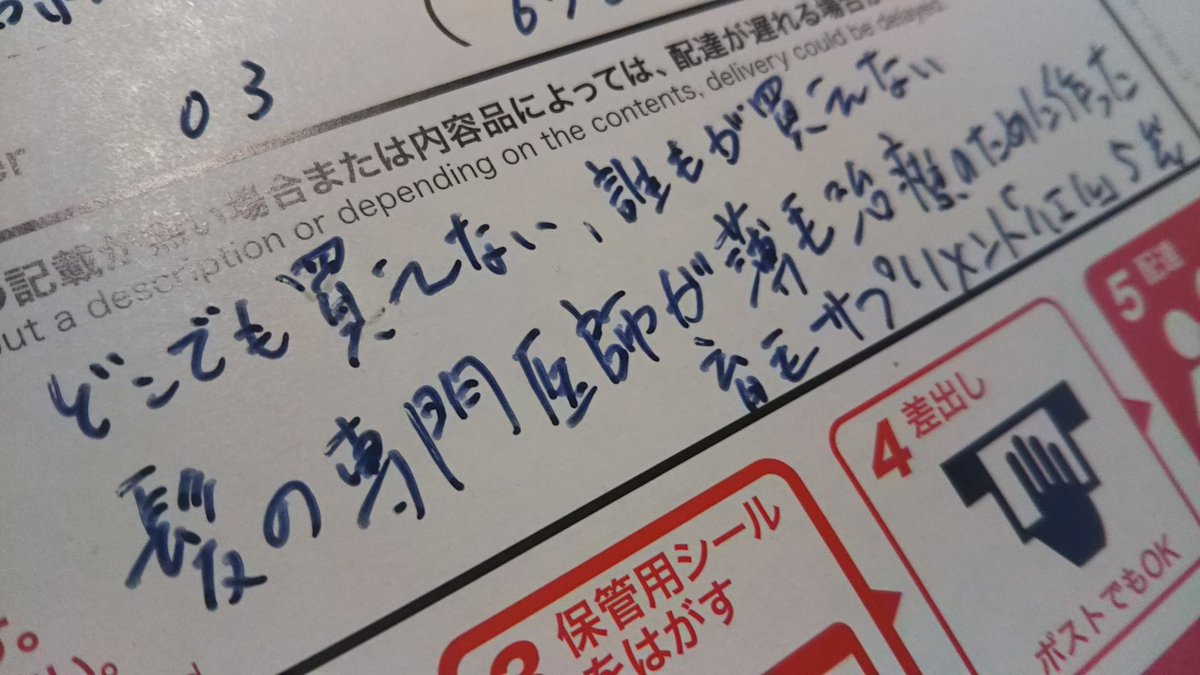 03
記載が無い場合または内容品によっては、配達が遅れる場合が
out a description or depending on the contents, delivery could be delayed.
どこでも買えない、誰もが買えない
髪の専門医師が薄毛治療のために作った
育毛サプリメント
保管用シール
はがす
4 差出し
ポストでもOK
5 配達